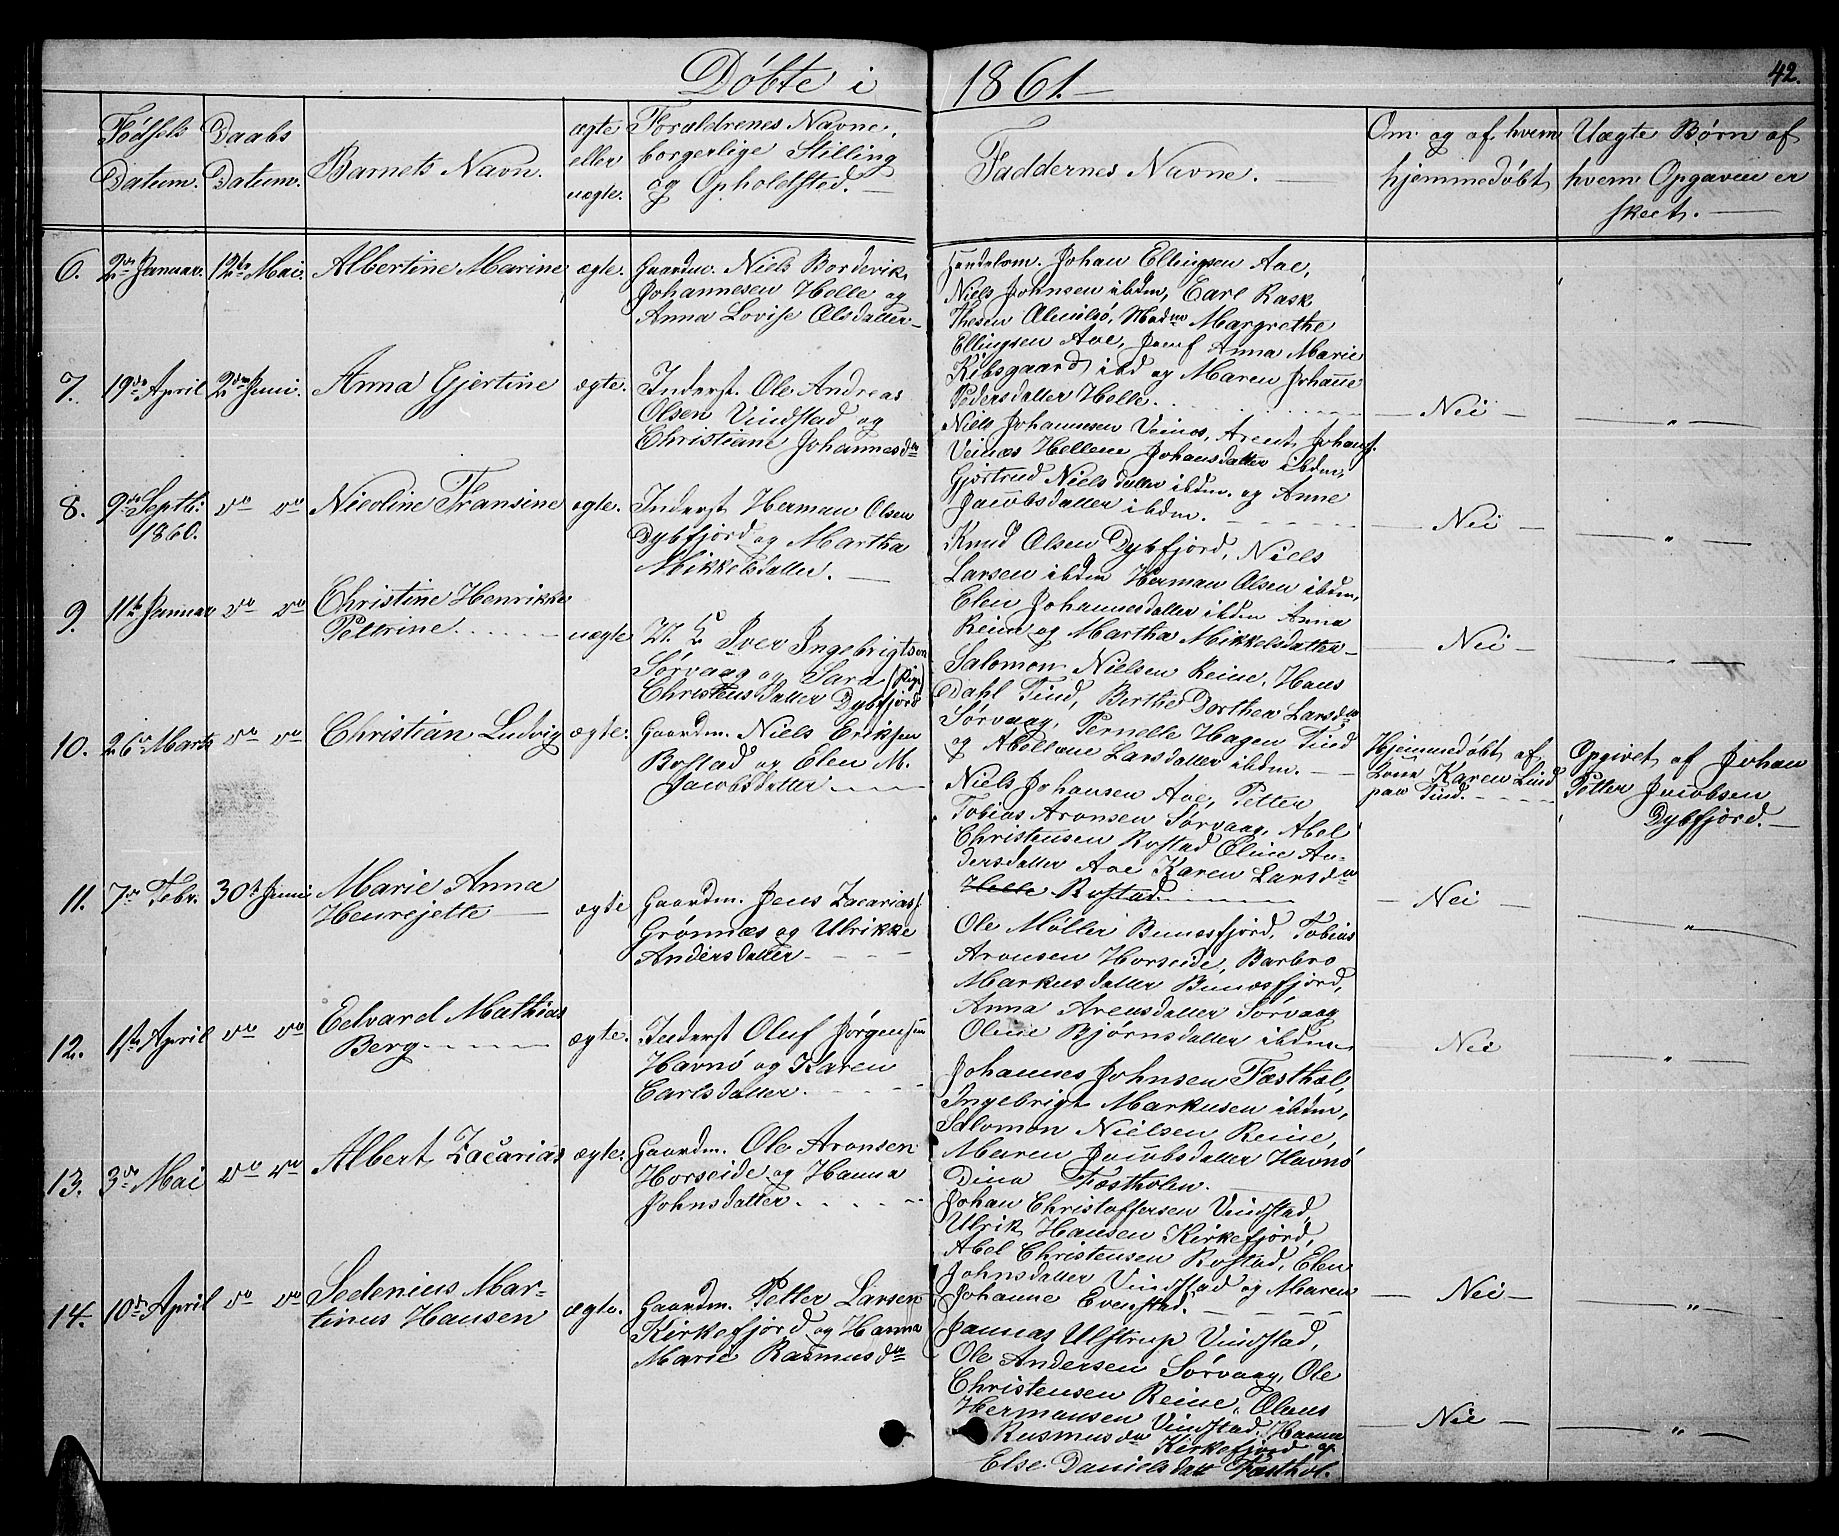 Døbte i 1861.
42.
Fødsels Datum.
Daabs Datum.
Barnets Navn.
ægte eller uægte.
Forældrenes Navne, borgerlige Stilling og Opholdsted.
Faddernes Navne.
Om og af hvem hjemmedøbt
Uægte Børn af hvem Opgaven er skeet.
6. 2den Januar. 12te Mai. Albertine Marine ægte. Gaardm. Niels Bordevik
Johannesen Helle og
Anna Lovise Olsdatter
Johan Ellingsen Aae,
Niels Johnsen ibdm, Carl Rask
Thesen Madme Margrethe
Ellingsen Aae, Jomf Anna Marie
Kibsgaard ibd og Maren Johanne
Pedersdatter Helle.
— Nei — — " —
7. 19de April 2den Juni. Anna Gjertine ægte. Inderst. Ole Andreas
Olsen Vindstad og
Christiane Johannesdtr
Niels Johannesen Veines, Arent Johans.
Veinæs Hellene Johansdatter ibdm,
Gjertrud Nielsdatter ibdm. og Anne
Jacobsdatter ibdm.
— Nei — — " —
8. 9de Septb: 1860. do do Nicoline Fransine ægte. Inderst Herman Olsen
Dybfjord og Martha
Mikkelsdatter.
Knud Olsen Dybfjord, Niels
Larsen ibdm Herman Olsen ibdm,
Elen Johannesdatter ibdm Anna
Reine og Martha Mikkelsdatter
— Nei — — " —
9. 11te Januar do do Christine Henrikke
Petrine. uægte U. K. Iver Ingebrigtsen
Sørvaag og Sara (Pige)
Christensdatter Dybfjord
Salomon Nielsen Reine, Hans
Dahl Tind, Berthe Dorthea Larsdtr
Sørvaag, Pernelle Hagen Tind
og Abelone Larsdatter ibdm.
Hjemmedøbt af
Karen Lind
paa Tind.
Opgivet af Johan
Petter Jacobsen
Dybfjord.
10. 26de Marts do do Christian Ludvig ægte. Gaardm. Niels Eriksen
Rostad og Elen M.
Jacobsdatter
Niels Johansen Aae, Petter
Tobias Aronsen Sørvaag, Abel
Christensen Rostad Oline An-
dersdatter Aae Karen Larsdtr
Helle Rostad
— Nei — — " —
11. 7de Febr. 30te Juni Marie Anna
Henrejette ægte Gaardm. Jens Zacarias.
Grønnæs og Ulrikke
Andersdatter
Ole Møller Bunesfjord, Tobias
Aronsen Horseide, Barbro
Markusdatter Bunesfjord,
Anna Arensdatter Sørvaag
Oline Bjørnsdatter ibdm
Nei — " —
12. 1ste April do do Edvard Mathias
Berg ægte. Inderst Oluf Jørgensen
Havnø og Karen
Carlsdatter.
Johannes Johnsen Fæsthæl,
Ingebrigt Markusen ibdm,
Salomon Nielsen Reine,
Maren Jacobsdatter Havnø
Dina Fæstholen.
13. 3de Mai do do Albert Zacarias ægte. Gaardm. Ole Aronsen
Horseide og Hanna
Johnsdatter.
Johan Christoffersen Vindstad,
Ulrik Hansen Kirkefjord,
Abel Christensen Rostad, Elen
Johnsdatter Vindstad og Maren
Johanne Evenstad.
— Nei — — " —
14. 10de April do do Sedenius Mar-
tinus Hansen ægte. Gaardm. Petter Larsen
Kirkefjord og Hanna
Marie Rasmusdtr
Ulstrup Vindstad,
Ole Andersen Sørvaag, Ole
Christensen Reine, Olaus
Hermansen Vindstad. Hanna
Rasmusdtr Kirkefjord og
Else Danielsdatt Fæsthol.
— Nei — — " —